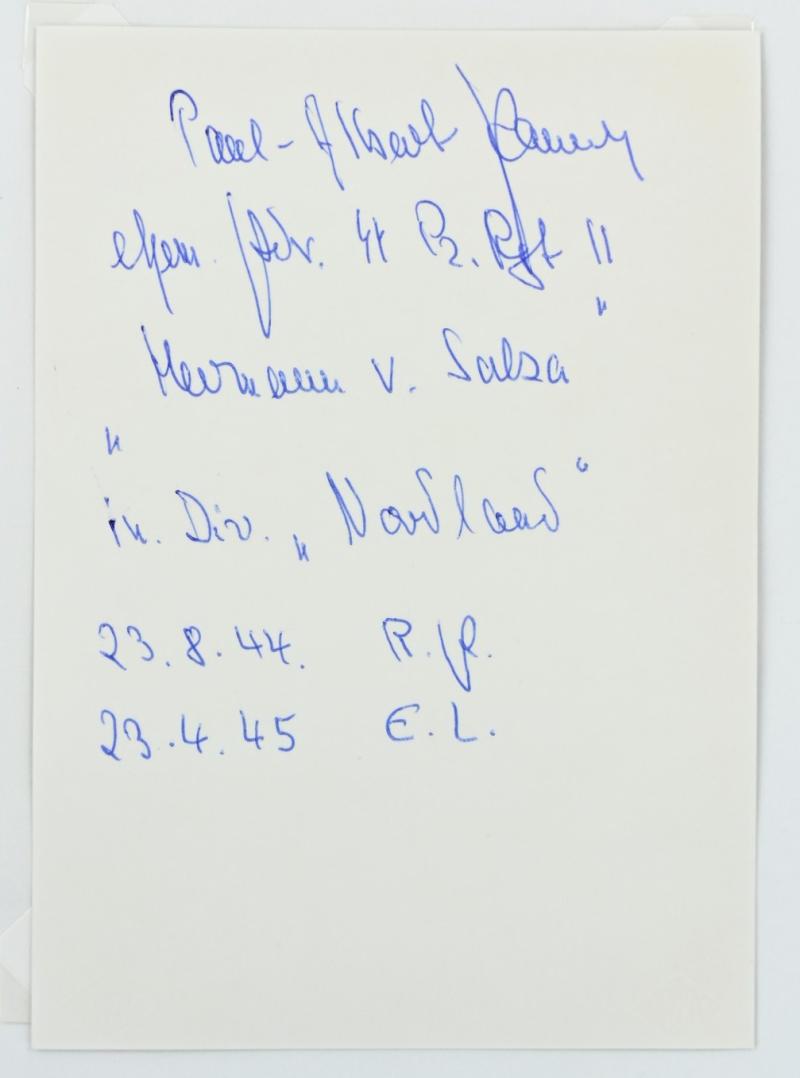 Paul-Albert Kausch
ehem. Kdr. SS Pz. Rgt 11
"Hermann v. Salsa"
in. Div. „Nordland“
23.8.44. R.K.
23.4.45 E.L.